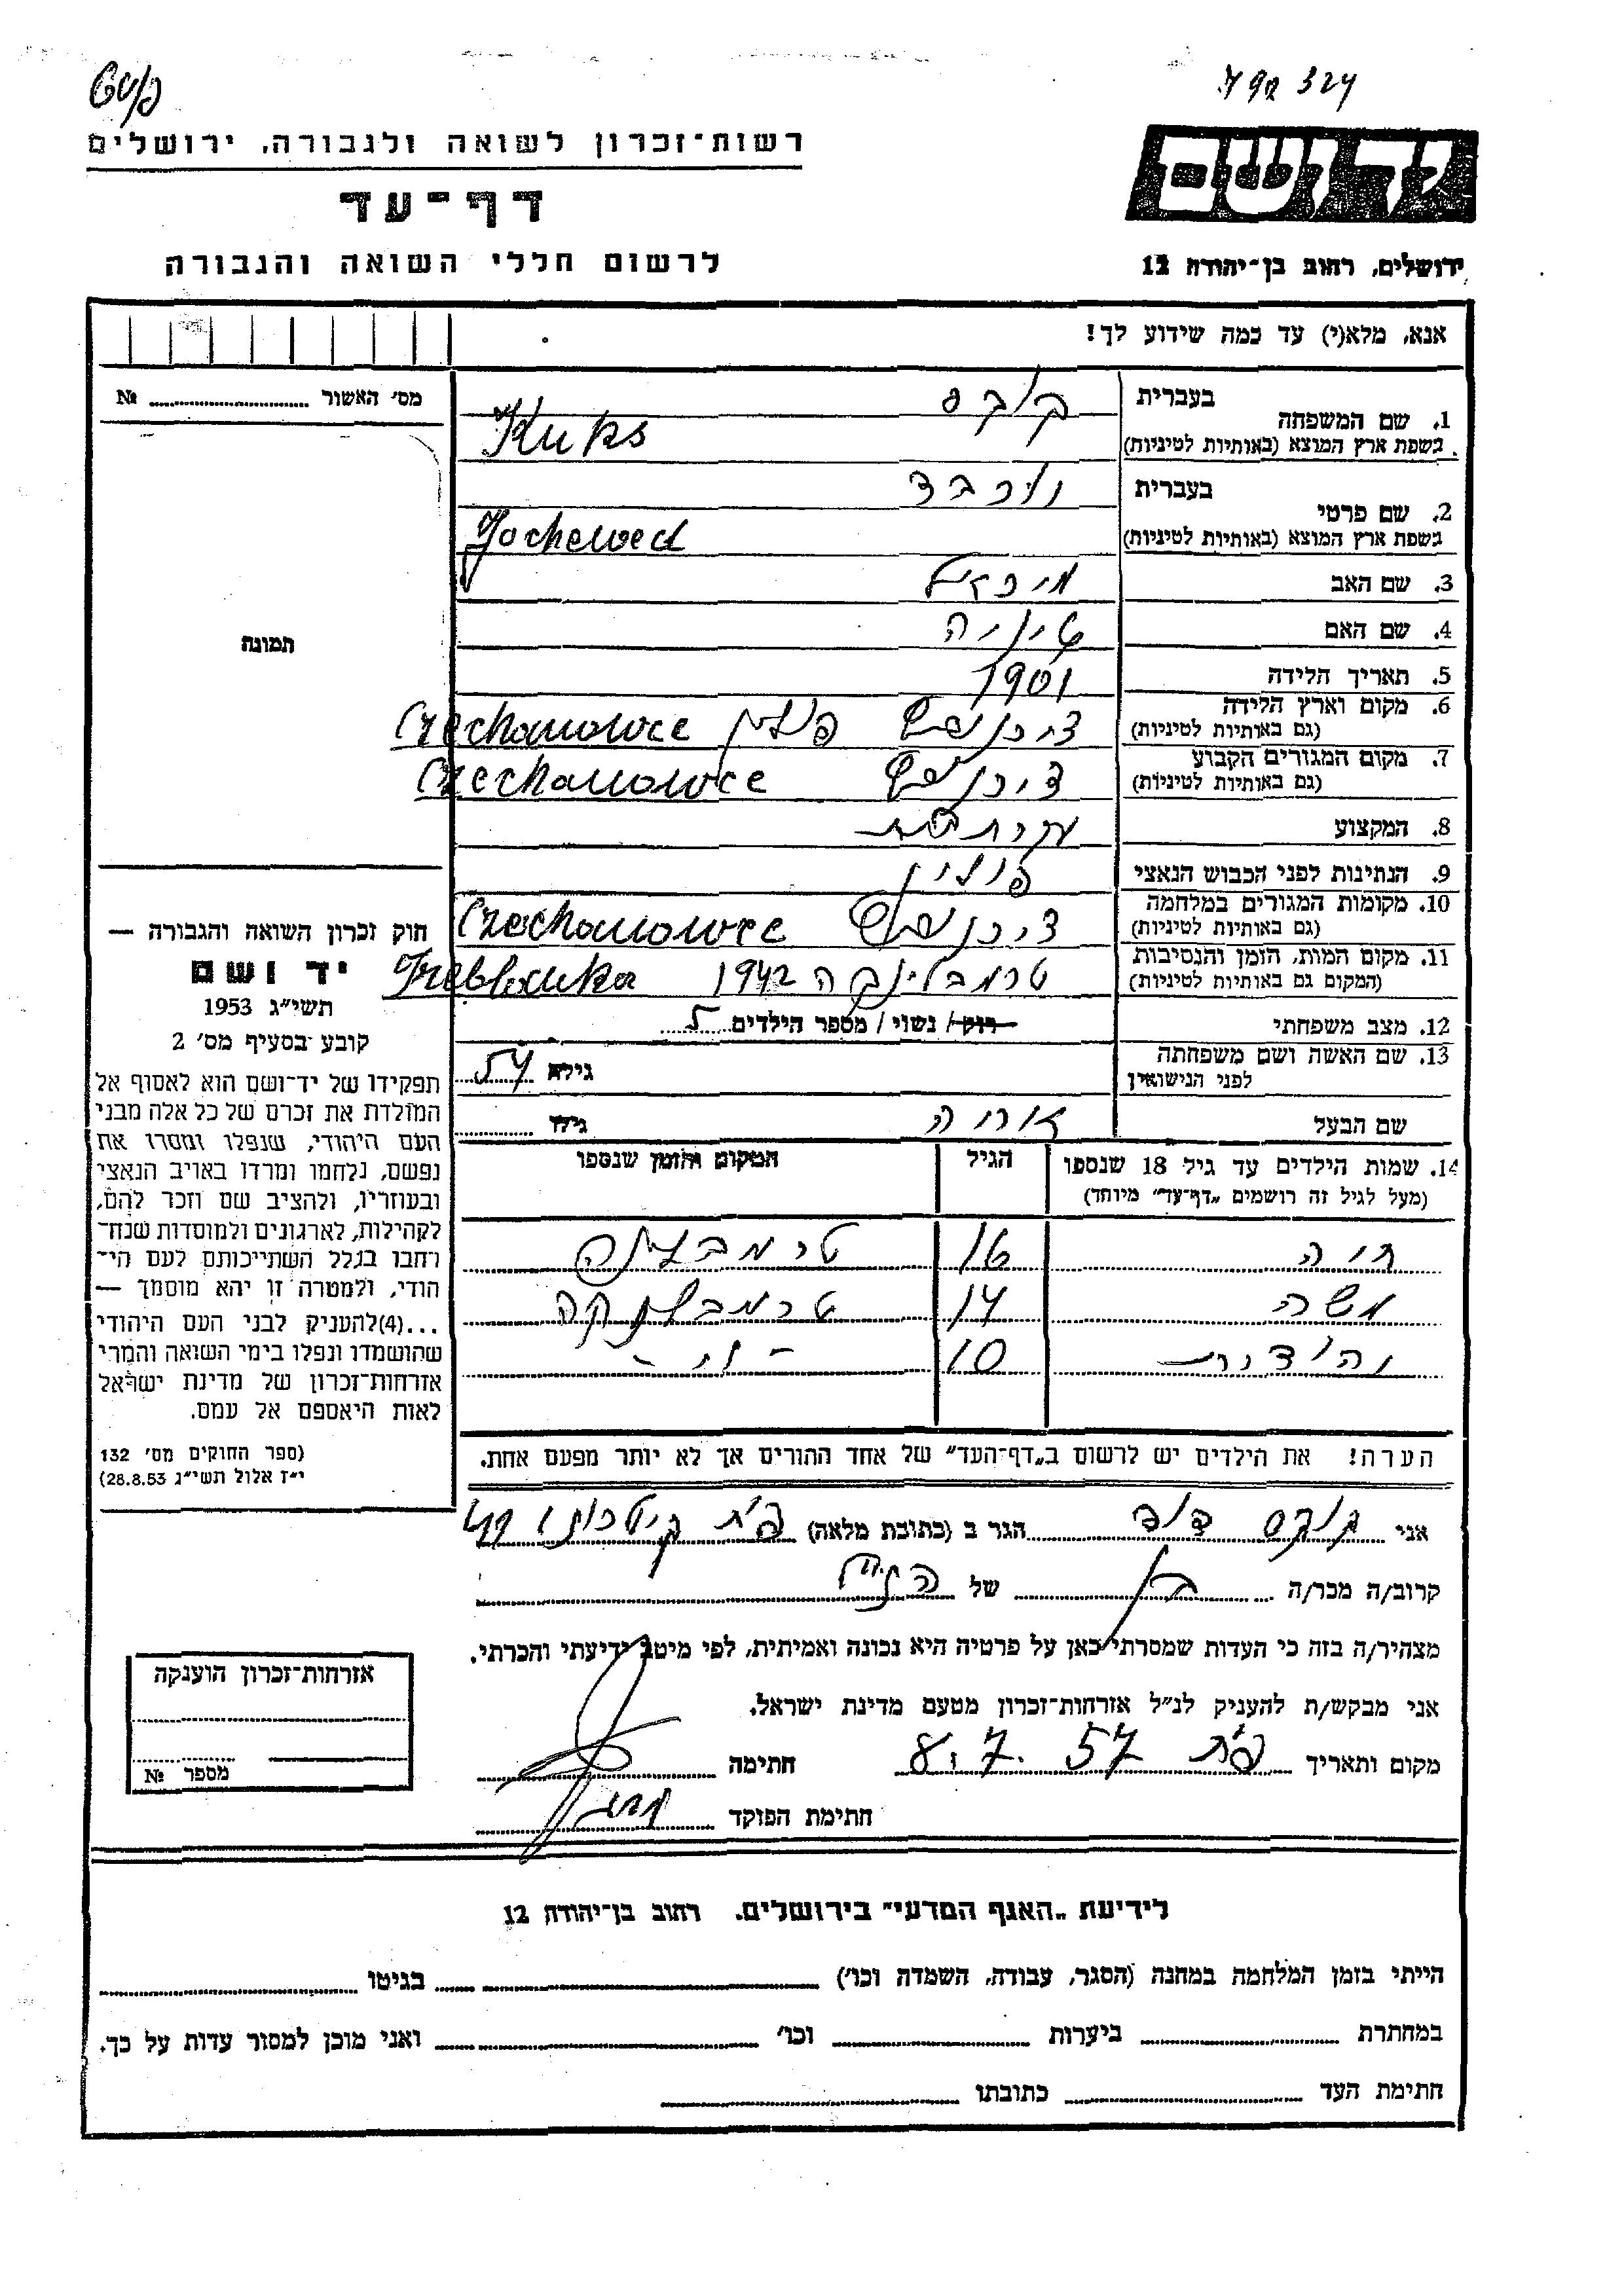 רשות־זכרון לשואה ולגבורה, ירושלים
דף־עד
לרשום חללי השואה והגבורה
יד ושם
ירושלים, רחוב בן־יהודה 12
אנא, מלא(י) עד כמה שידוע לך!
מס׳ האשור № 
תמונה
1. שם המשפחה בעברית קוקס
בשפת ארץ המוצא (באותיות לטיניות) Kuks
2. שם פרטי בעברית יוכבד
בשפת ארץ המוצא (באותיות לטיניות) Jochewed
3. שם האב מיכאל
4. שם האם
5. תאריך הלידה 1901
6. מקום וארץ הלידה (גם באותיות לטיניות) פולין Czechanowce
7. מקום המגורים הקבוע (גם באותיות לטיניות) Czechanowce
8. המקצוע
9. הנתינות לפני הכבוש הנאצי פולין
10. מקומות המגורים במלחמה (גם באותיות לטיניות) Czechanowce
11. מקום המות, הזמן והנסיבות (המקום גם באותיות לטיניות) טרמבלינקה 1942
12. מצב משפחתי רווק / נשוי / מספר הילדים 5
13. שם האשה ושם משפחתה לפני הנישואין גילה
שם הבעל גילו
14. שמות הילדים עד גיל 18 שנספו הגיל המקום והזמן שנספו
(מעל לגיל זה רושמים „דף־עד״ מיוחד)
חוה 16
משה 14 טרמבלינקה
יהודית 10
הערה! את הילדים יש לרשום ב„דף־העד״ של אחד ההורים אך לא יותר מפעם אחת.
חוק זכרון השואה והגבורה —
יד ושם
תשי״ג 1953
קובע בסעיף מס׳ 2
תפקידו של יד־ושם הוא לאסוף אל
המולדת את זכרם של כל אלה מבני
העם היהודי, שנפלו ומסרו את
נפשם, נלחמו ומרדו באויב הנאצי
ובעוזריו, ולהציב שם וזכר להם,
לקהילות, לארגונים ולמוסדות שנח־
רבו בגלל השתייכותם לעם הי־
הודי, ולמטרה זו יהא מוסמך —
...(4)להעניק לבני העם היהודי
שהושמדו ונפלו בימי השואה והמרי
אזרחות־זכרון של מדינת ישראל
לאות היאספם אל עמם.
(ספר החוקים מס׳ 132
י״ז אלול תשי״ג 28.8.53)
אני קוקס דוד הגר ב (כתובת מלאה) פ״ת
קרוב/ה מכר/ה בן של
מצהיר/ה בזה כי העדות שמסרתי כאן על פרטיה היא נכונה ואמיתית, לפי מיטב ידיעתי והכרתי.
אני מבקש/ת להעניק לנ״ל אזרחות־זכרון מטעם מדינת ישראל.
מקום ותאריך פ״ת 8.7.57 חתימה
חתימת הפוקד
אזרחות־זכרון הוענקה
מספר №
לידיעת „האגף המדעי״ בירושלים. רחוב בן־יהודה 12
הייתי בזמן המלחמה במחנה (הסגר, עבודה, השמדה וכו׳) בגיטו
במחתרת ביערות וכו׳ ואני מוכן למסור עדות על כך.
חתימת העד כתובתו